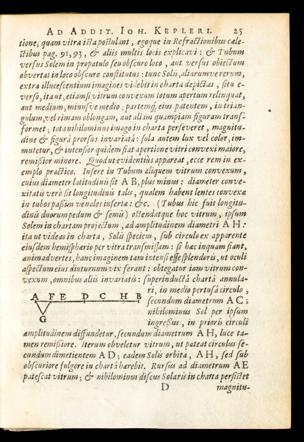 AD ADDIT. IOH. KEPLERI. 25
tione, quam vitra ista postulant, egoque in Refractionibus cæle-
stibus pag. 91, 93, & aliis multis locis explicavi: & Tubum
versus Solem in propatulo seu obscuro loco, aut versus obiectum
obvertat in loco obscuro constitutus: tunc Solis, aliarumve rerum,
extra illucescentium imagines videbit in charta depictas, sive e-
verso, ita ut, etiamsi vitrum convexum totum apertum relinquat,
aut medium, minusve medio, partemq; eius patentem, in trian-
gulum, vel rimam oblongam, aut aliam quampiam figuram trans-
formet; tota nihilominus imago in charta perseveret, magnitu-
dine & figura prorsus invariatâ: sola autem lux vel color, im-
mutetur, & intensior quidem fiat apertione vitri convexi maiore,
remissior minore. Quod ut evidentius appareat, ecce rem in ex-
emplo practico. Insere in Tubum aliquem vitrum convexum,
cuius diameter latitudinis sit AB, plus minus: diameter conve-
xitatis verò sit longitudinis talis, qualem habent lentes convexæ
in tubo passim venales insertæ: &c. (Tubus hîc fuit longitu-
dinis duorum pedum & semis) ostendatque hoc vitrum, ipsum
Solem in chartam proiectum, ad amplitudinem diametri AH:
ita ut videas in charta, Solis speciem, sub circulo ex apparente
eiusdem hemisphærio per vitra transmissam: si hæc inquam fiant,
animadvertes, hanc imaginem tam intensè esse splenduris, ut oculi
aspectum eius diuturnum vix ferant: obtegatur iam vitrum con-
vexum, omnibus aliis invariatis: superinductâ chartâ annula-
ri, in medio pertusâ circulo,
A F E D C H B
secundum diametrum AC;
nihilominus Sol per ipsum
G
ingressus, in prioris circuli
amplitudinem diffundetur, secundum diametrum AH, luce ta-
men remissiore. Iterum obveletur vitrum, ut pateat circulus se-
cundum dimetientem AD; eadem Solis orbita, AH, sed sub
obscuriore fulgore in charta hærebit. Rursus ad diametrum AE
patescat vitrum; & nihilominus discus Solaris in charta persistet
D magnitu-